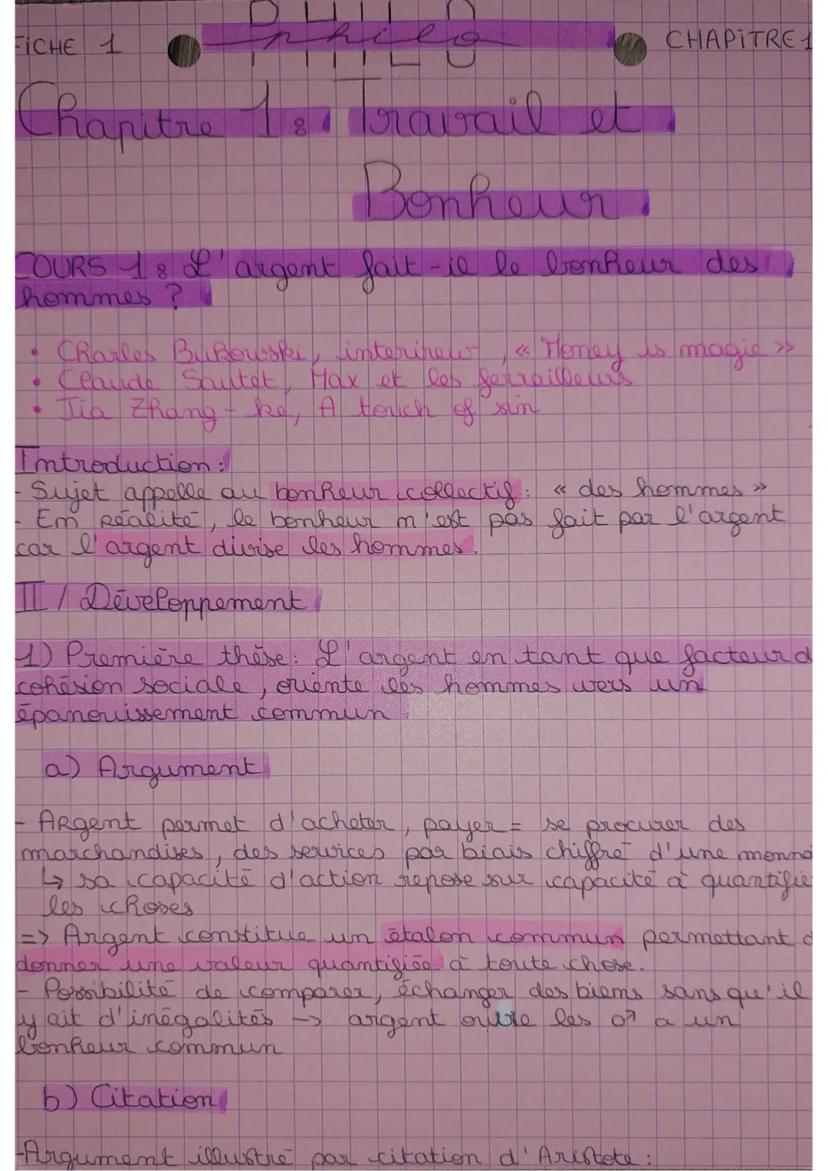 FICHE 1 philo CHAPITRE 1
PHILO
Chapitre 1 : Travail et
Bonheur
COURS 1 : L'argent fait-il le bonheur des
hommes ?
• Charles Bukowski, interineur, « Money is magic »
• Claude Sautet, Max et les ferrailleurs
• Jia Zhang-ke, A touch of sin
Introduction :
- Sujet appelle au bonheur collectif : « des hommes »
- En réalité, le bonheur n'est pas fait par l'argent
car l'argent divise les hommes.
II / Développement
1) Première thèse : L'argent en tant que facteur d
cohésion sociale, oriente les hommes vers un
épanouissement commun
a) Argument
- Argent permet d'acheter, payer = se procurer des
marchandises, des services par biais chiffré d'une monna
↳ sa capacité d'action repose sur capacité à quantifie
les choses
=> Argent constitue un étalon commun permettant d
donner une valeur quantifiée à toute chose.
- Possibilité de comparer, échanger des biens sans qu'il
y ait d'inégalités -> argent ouvre les a un
bonheur commun
b) Citation
- Argument illustré par citation d'Aristote :